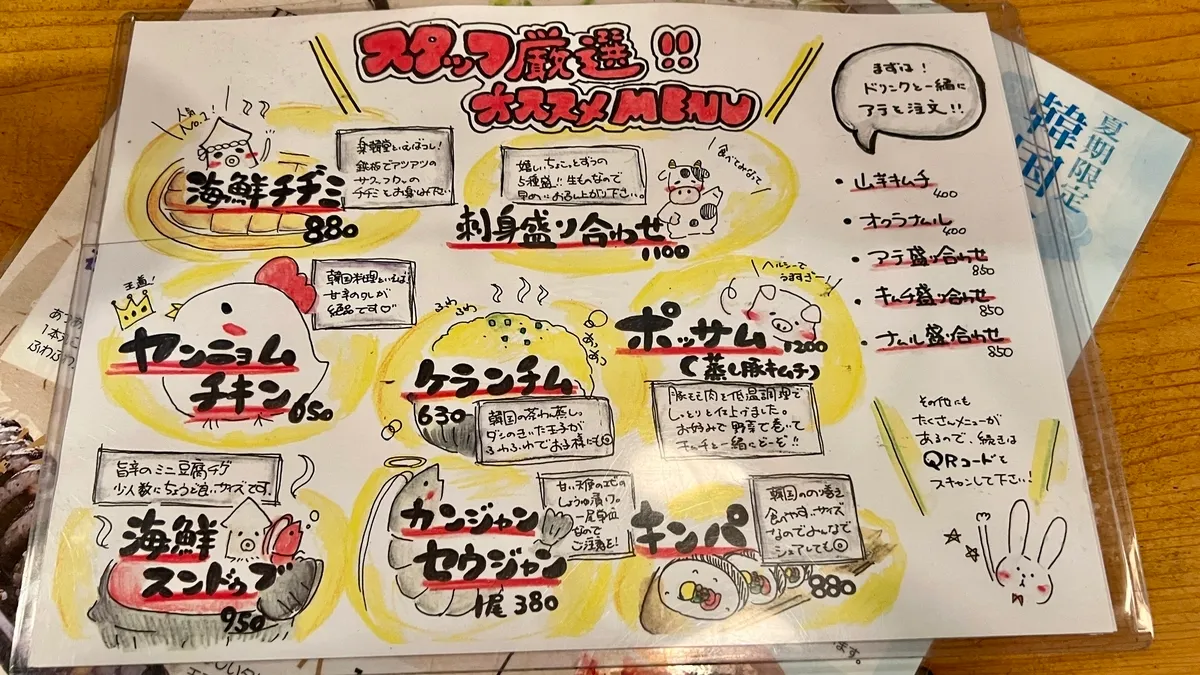 スタッフ厳選!!
オススメMENU
まずは!
ドリンクと一緒に
アテを注文!!
人気
No.1
海鮮チヂミ
880
楽韓堂といえばコレ!
鉄板でアツアツの
サクフワッの
チヂミをお召し下さい
嬉しいちょこっとずつの
5種盛!!生ものなので
早めにお召し上がり下さい。
食べてみなって
刺身盛り合わせ
1100
・山芋キムチ
400
・オクラナムル
400
・アテ盛り合わせ
850
・キムチ盛り合わせ
850
・ナムル盛り合わせ
850
王道!
韓国料理といえば!
甘辛のタレが
絶品です♡
ヤンニョム
チキン 650
ふわふわ
ケランチム
630
韓国の茶わん蒸し。
ダシのきいた玉子が
ふわふわでお子様にも◎
ヘルシーで
うますぎー
ポッサム 1200
(蒸し豚キムチ)
豚もも肉を低温調理で
しっとりと仕上げました。
お好みで野菜で巻いて
キムチと一緒にどーぞ!!
旨辛のミニ豆腐チゲ
少人数にちょうど良いサイズです。
海鮮
スンドゥブ
950
甘い天使のエビの
しょうゆ漬け。
一尾単位
なので
ご注意を!
カンジャン
セウジャン
1尾 380
韓国ののり巻き
食べやすいサイズ
なのでみんなで
シェアしても◎
キンパ
880
その他にも
たくさんメニューが
あるので、続きは
QRコードを
スキャンして下さい!
夏期限定
韓国